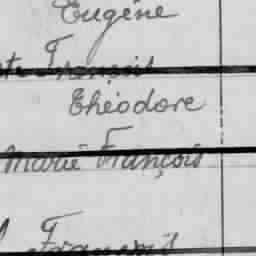 Eugéne
François
Théodore
Marie François
François